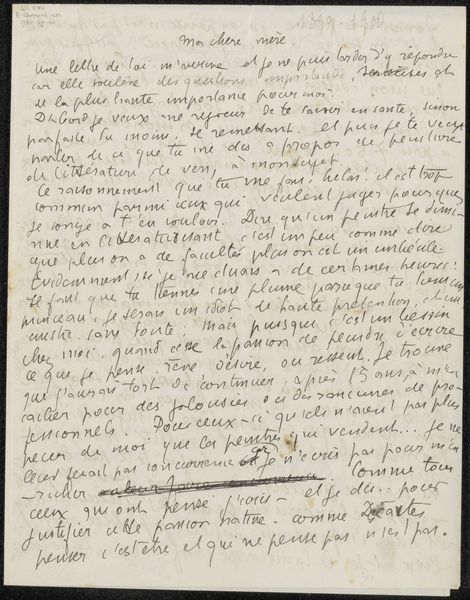 1899-1900
Ma chère mère.
Une lettre de toi m'arrive et je ne puis tarder d'y répondre
car elle soulève des questions importantes et
de la plus haute importance pour moi.
D'abord je veux me réjouir de te savoir en santé, sinon
parfaite du moins, se remettant. et puis je te veux
parler de ce que tu me dis à propos de peinture
de littérature de vers, à mon sujet.
Ce raisonnement que tu me fais, hélas, il est trop
commun parmi ceux qui veulent juger pour que
je songe à t'en vouloir. Dire qu'un peintre se dimi-
nue en littératurisant c'est un peu comme dire
que plus on a de facultés plus on est un imbécile
Evidemment, si je me disais à de certaines heures:
Il faut que tu tiennes une plume parce que tu tiens un
pinceau, je serais un idiot de haute prétention, et un
cuistre sans doute; mais puisque c'est un besoin
chez moi, quand cesse la passion de peindre, d'écrire
ce que je pense, rêve, désire, ou ressent. Je trouve
que j'aurais tort de continuer, après 15 ans, à m'en
cacher pour des jalousies ou des rancunes de pro-
fessionnels. Pour ceux-ci qu'ils n'aient pas plus
peur de moi que les peintres qui vendent... je ne
leur ferait pas concurrence car je n'écris pas pour m'en
-richir. Comme tous
ceux qui ont pensé j'écris - et je dis.. pour
justifier cette passion native. comme Descartes
penser c'est être et qui ne pense pas n'est pas.